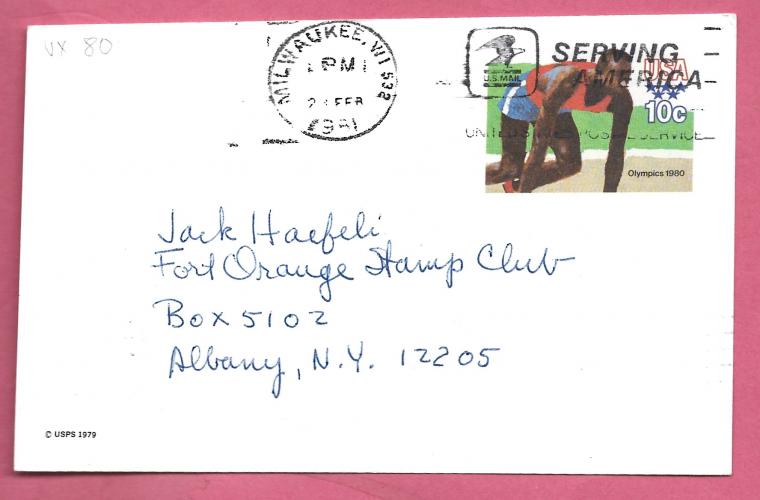 UX 80
MILWAUKEE, WI 532
PM
FEB
1981
U.S. MAIL
SERVING
AMERICA
UNITED STATES POSTAL SERVICE
USA
10c
Olympics 1980
Jack Haefeli
Fort Orange Stamp Club
Box 5102
Albany, N.Y. 12205
© USPS 1979